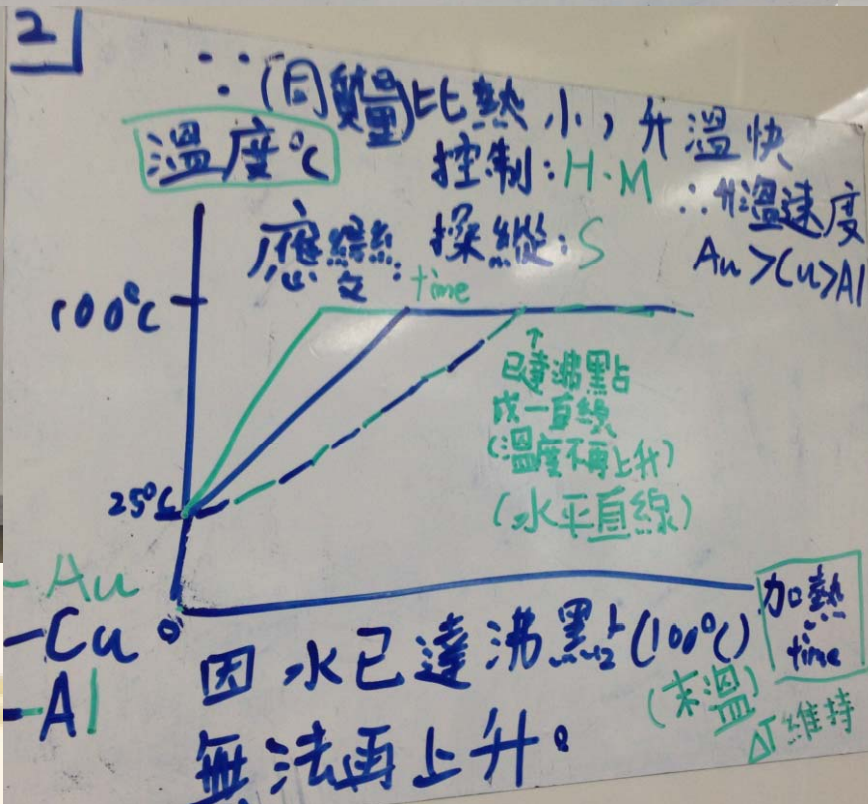 2
∵(同質量)比熱小,升溫快
溫度℃
控制:H.M
∴升溫速度
Au>Cu>Al
應變:time
操縱:S
100℃
↑
已達沸點
成一直線
(溫度不再上升)
(水平直線)
25℃
Au
Cu
Al
0
加熱
time
因水已達沸點(100℃)
(末溫)
ΔT維持
無法再上升。